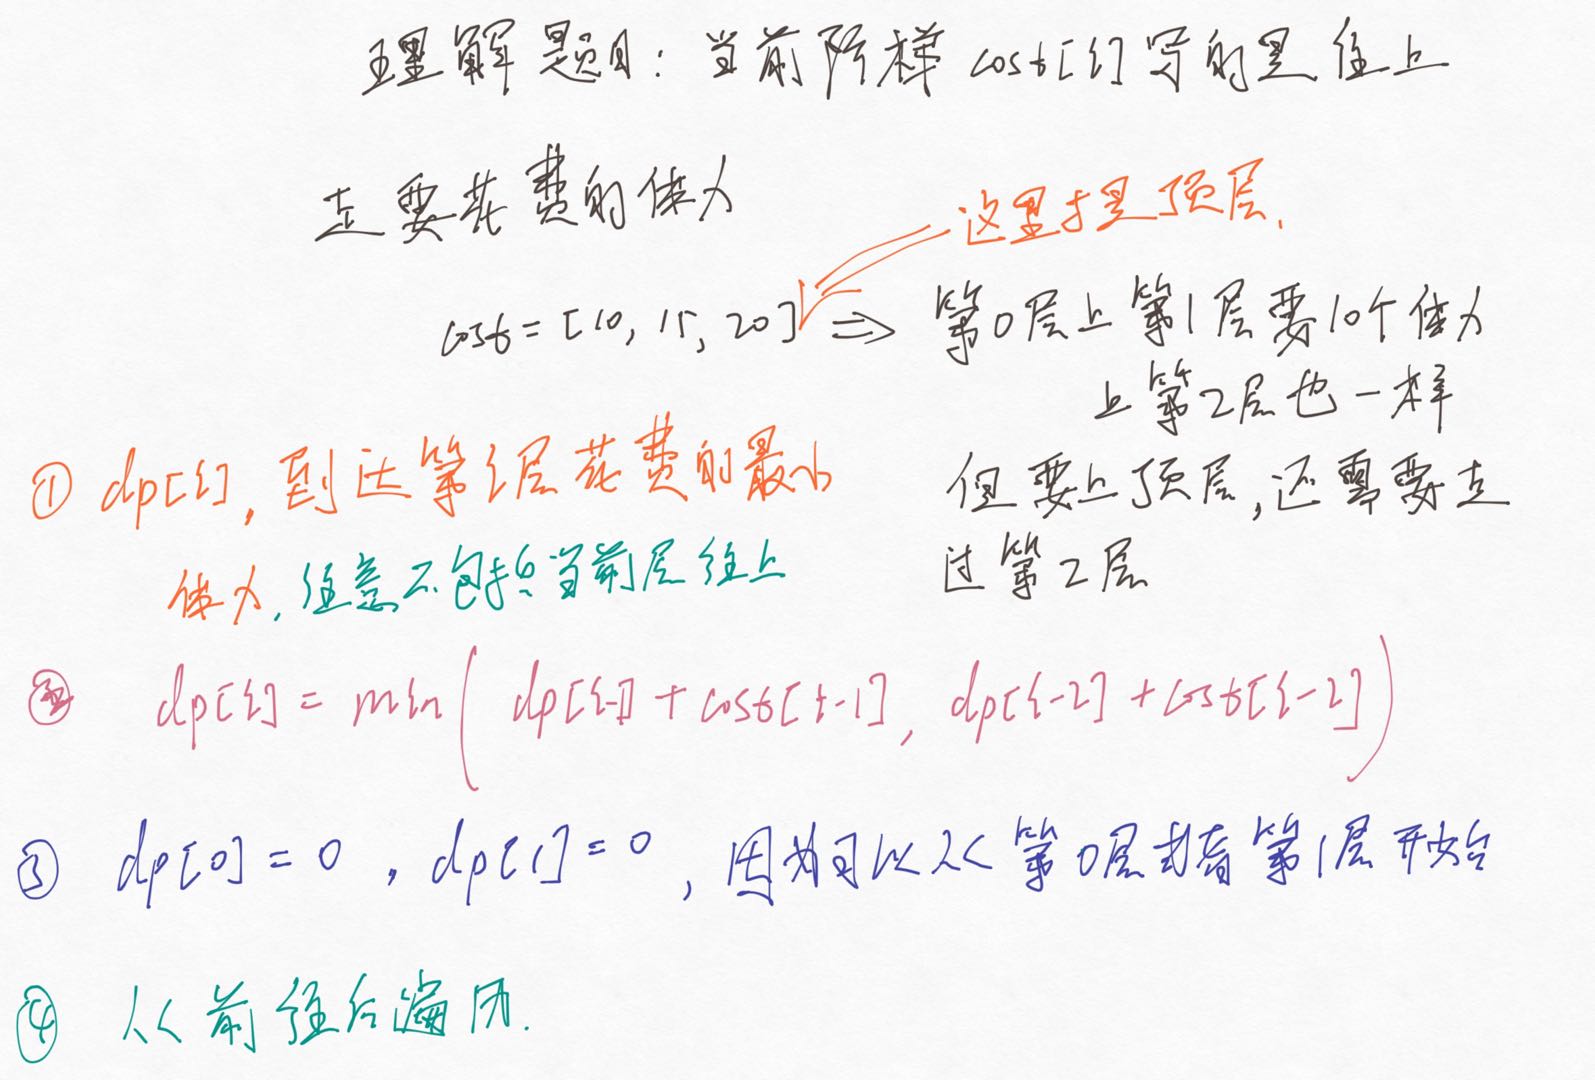 理解题目：当前阶梯 cost[i]写的是往上
走要花费的体力
这里才是顶层.
cost = [10, 15, 20] ⇒ 第0层上第1层要10个体力
上第2层也一样
但要上顶层,还需要走
过第2层
① dp[i], 到达第i层花费的最小
体力, 注意不包括当前层往上
② dp[i] = min( dp[i-1] + cost[i-1], dp[i-2] + cost[i-2])
③ dp[0] = 0 , dp[1] = 0 , 因为可以从第0层或者第1层开始
④ 从前往后遍历.